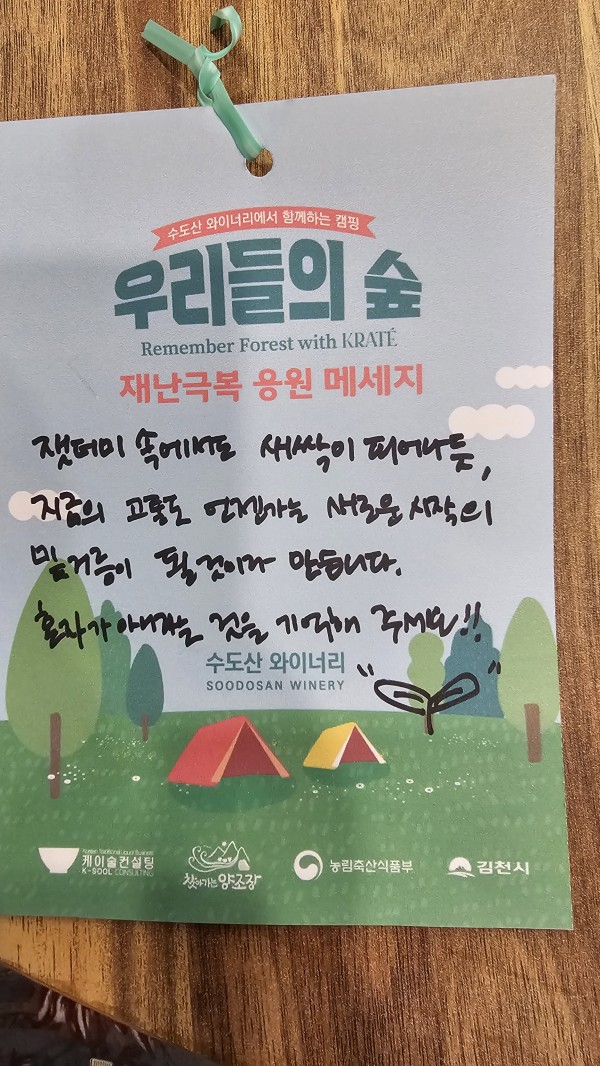 수도산 와이너리에서 함께하는 캠핑
우리들의 숲
Remember Forest with KRATÉ
재난극복 응원 메세지
잿더미 속에서도 새싹이 피어나듯,
지금의 고통도 언젠가는 새로운 시작의
밑거름이 될 것이라 믿습니다.
혼자가 아니라는 것을 기억해 주세요!!
수도산 와이너리
SOODOSAN WINERY
Korean Traditional Liquor Business
케이술컨설팅
K-SOOL CONSULTING
찾아가는 양조장
농림축산식품부
김천시